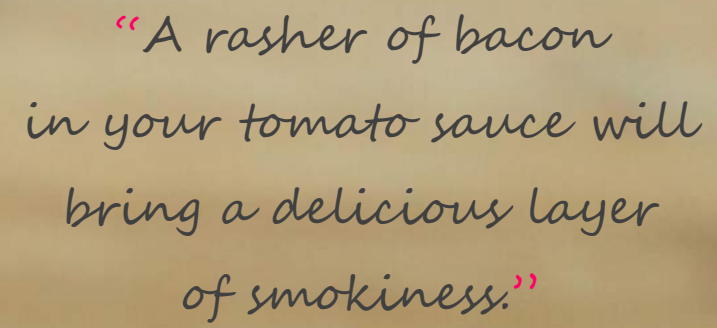 “A rasher of bacon
in your tomato sauce will
bring a delicious layer
of smokiness.”